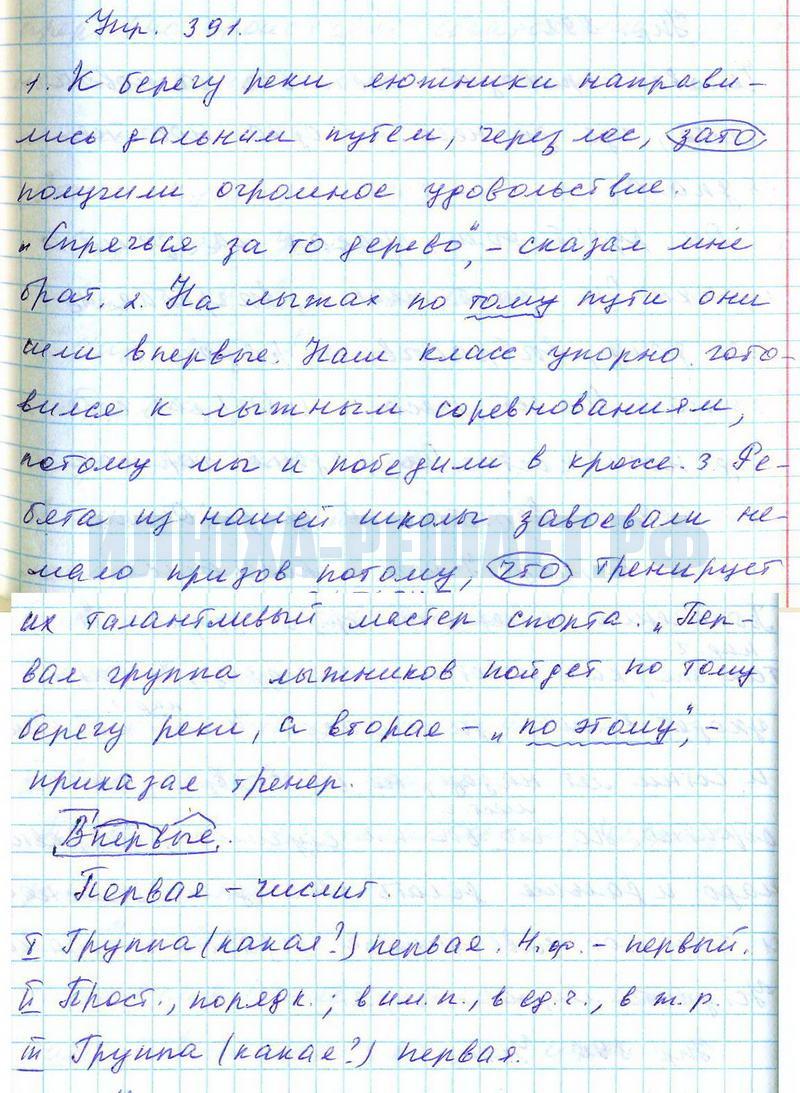 Упр. 391.
1. К берегу реки лыжники направи-
лись дальним путём, через лес, зато
получили огромное удовольствие.
„Спрячься за то дерево", – сказал мне
брат. 2. На лыжах по тому пути они
шли впервые. Наш класс упорно гото-
вился к лыжным соревнованиям,
потому мы и победили в кроссе. 3 Ре-
бята из нашей школы завоевали не-
мало призов потому, что тренирует
их талантливый мастер спорта. „Пер-
вая группа лыжников пойдет по тому
берегу реки, а вторая – „по этому", –
приказал тренер.
Впервые.
Первая – числит.
I Группа (какая?) первая. Н.ф. – первый.
II Прост., порядк.; в им.п., в ед.ч., в ж.р.
III Группа (какая?) первая.